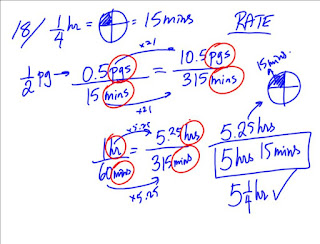 18/ 1/4 hr = = 15 mins RATE
×21
1/2 pg → 0.5 pgs / 15 mins = 10.5 pgs / 315 mins
×21
15 mins.
×5.25
1 hr / 60 mins = 5.25 hrs / 315 mins
×5.25
5.25 hrs
5 hrs 15 mins
5 1/4 hr ✓